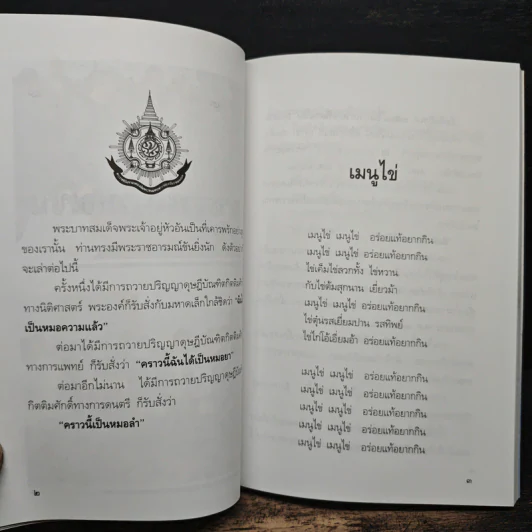 พระบาทสมเด็จพระเจ้าอยู่หัวอันเป็นที่เคารพรัก
ของเรานั้น ท่านทรงมีพระราชอารมณ์ขันยิ่งนัก
จะเล่าต่อไปนี้
ครั้งหนึ่งได้มีการถวายปริญญาดุษฎีบัณฑิตกิตติมศักดิ์
ทางนิติศาสตร์ พระองค์ก็รับสั่งกับมหาดเล็กใกล้ชิดว่า
เป็นหมอความแล้ว”
ต่อมาได้มีการถวายปริญญาดุษฎีบัณฑิตกิตติมศักดิ์
ทางการแพทย์ ก็รับสั่งว่า “คราวนี้ฉันได้เป็นหมอยา”
ต่อมาอีกไม่นาน ได้มีการถวายปริญญาดุษฎีบัณฑิต
กิตติมศักดิ์ทางการดนตรี ก็รับสั่งว่า
“คราวนี้เป็นหมอลำ”
๒
เมนูไข่
เมนูไข่ เมนูไข่ อร่อยแท้อยากกิน
เมนูไข่ เมนูไข่ อร่อยแท้อยากกิน
ไข่เค็มไข่ลวกทั้ง ไข่หวาน
กับไข่ต้มสุกนาน เยี่ยวม้า
เมนูไข่ เมนูไข่ อร่อยแท้อยากกิน
ไข่ตุ๋นรสเยี่ยมปาน รสทิพย์
ไข่ไก่โอ้เอี่ยมอ้า อร่อยแท้อยากกิน
เมนูไข่ เมนูไข่ อร่อยแท้อยากกิน
เมนูไข่ เมนูไข่ อร่อยแท้อยากกิน
เมนูไข่ เมนูไข่ อร่อยแท้อยากกิน
เมนูไข่ เมนูไข่ อร่อยแท้อยากกิน
เมนูไข่ เมนูไข่ อร่อยแท้อยากกิน
๓